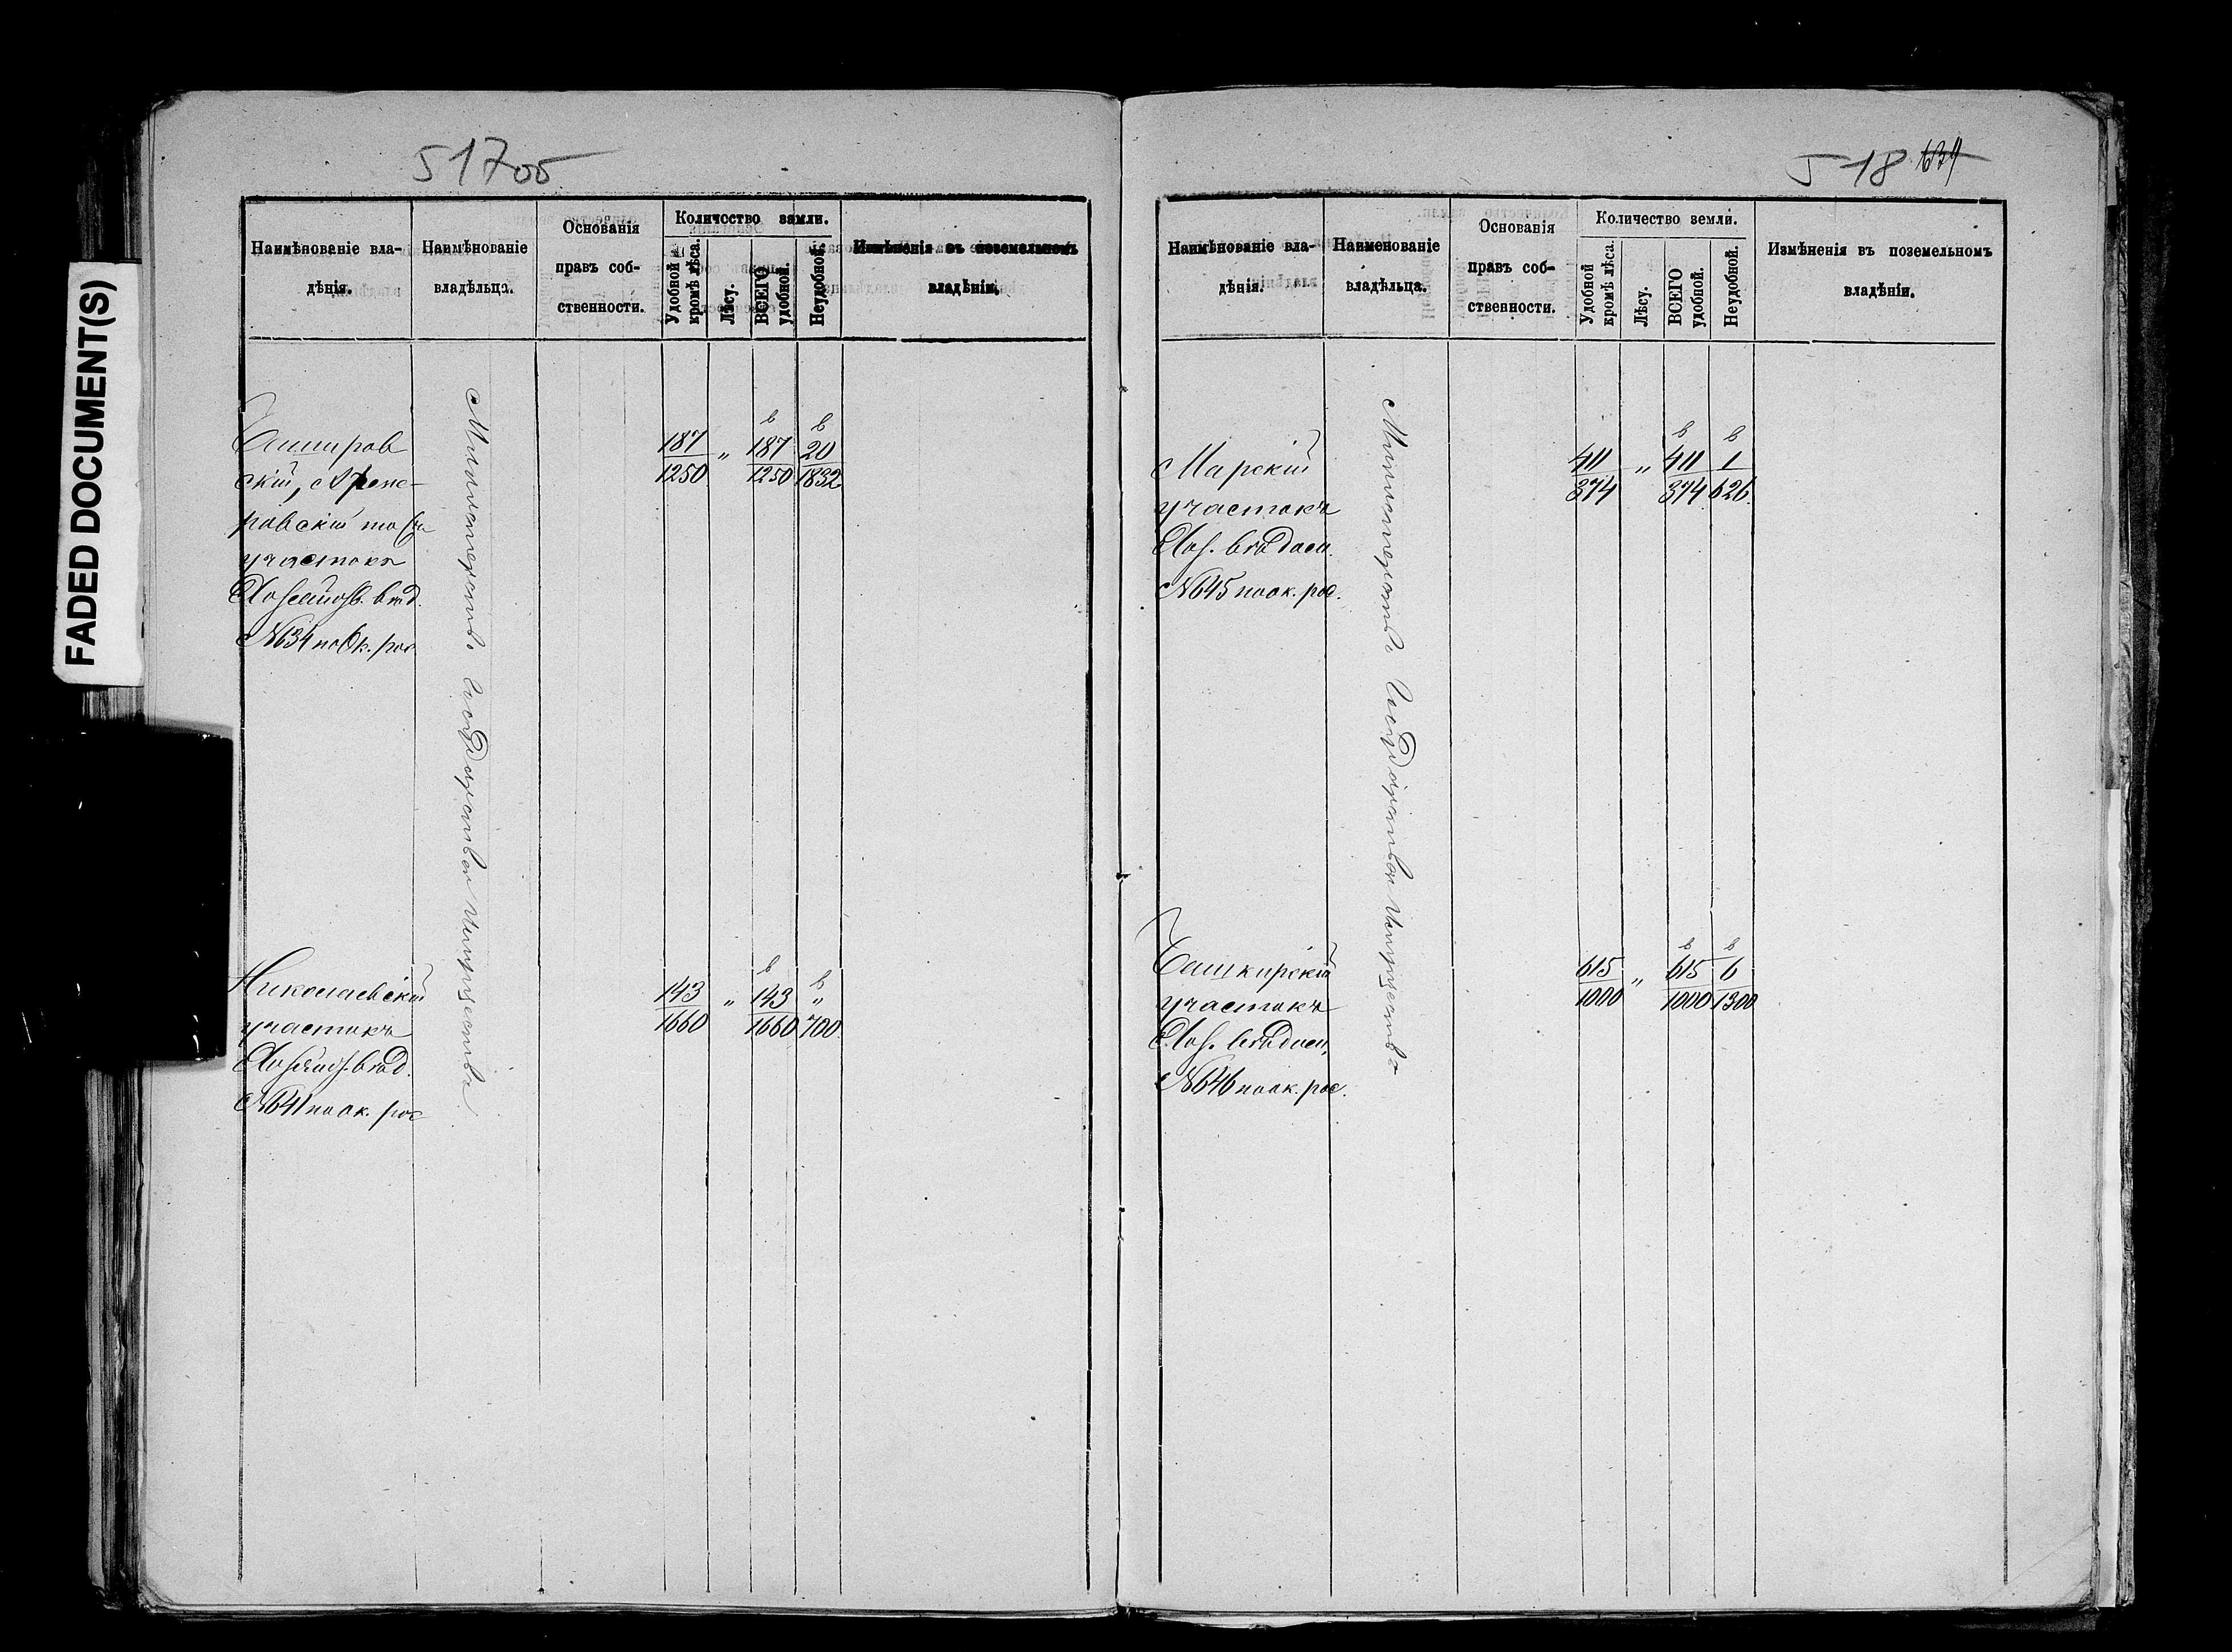 FADED DOCUMENT(S)
517об
Наимѣнованіе вла-
дѣнія.
Наимѣнованіе
владѣльца.
Основанія
правъ соб-
ственности.
Количество земли.
Удобной
кромѣ лѣса.
Лѣсу.
ВСЕГО
удобной.
Неудобной.
Измѣненія въ поземельномъ
владѣніи.
скій,
участокъ
№ 634 по ок. рос.
Министерство Государственныхъ Имуществъ
187 „ 187 20
1250 1250 1832
Николаевскій
участокъ
№ 641 по ок. рос
143 „ 143 „
1660 1660 700
518 634
Наимѣнованіе вла-
дѣнія.
Наименованіе
владѣльца.
Основанія
правъ соб-
ственности.
Количество земли.
Удобной
кромѣ лѣса.
Лѣсу.
ВСЕГО
удобной.
Неудобной.
Измѣненія въ поземельномъ
владѣніи.
Марскій
участокъ
№ 645 по ок. рос.
Министерство Государственныхъ Имуществъ
411 „ 411 1
374 374 626
Башкирскій
участокъ
№ 646 по ок. рос.
615 „ 615 6
1000 1000 1300